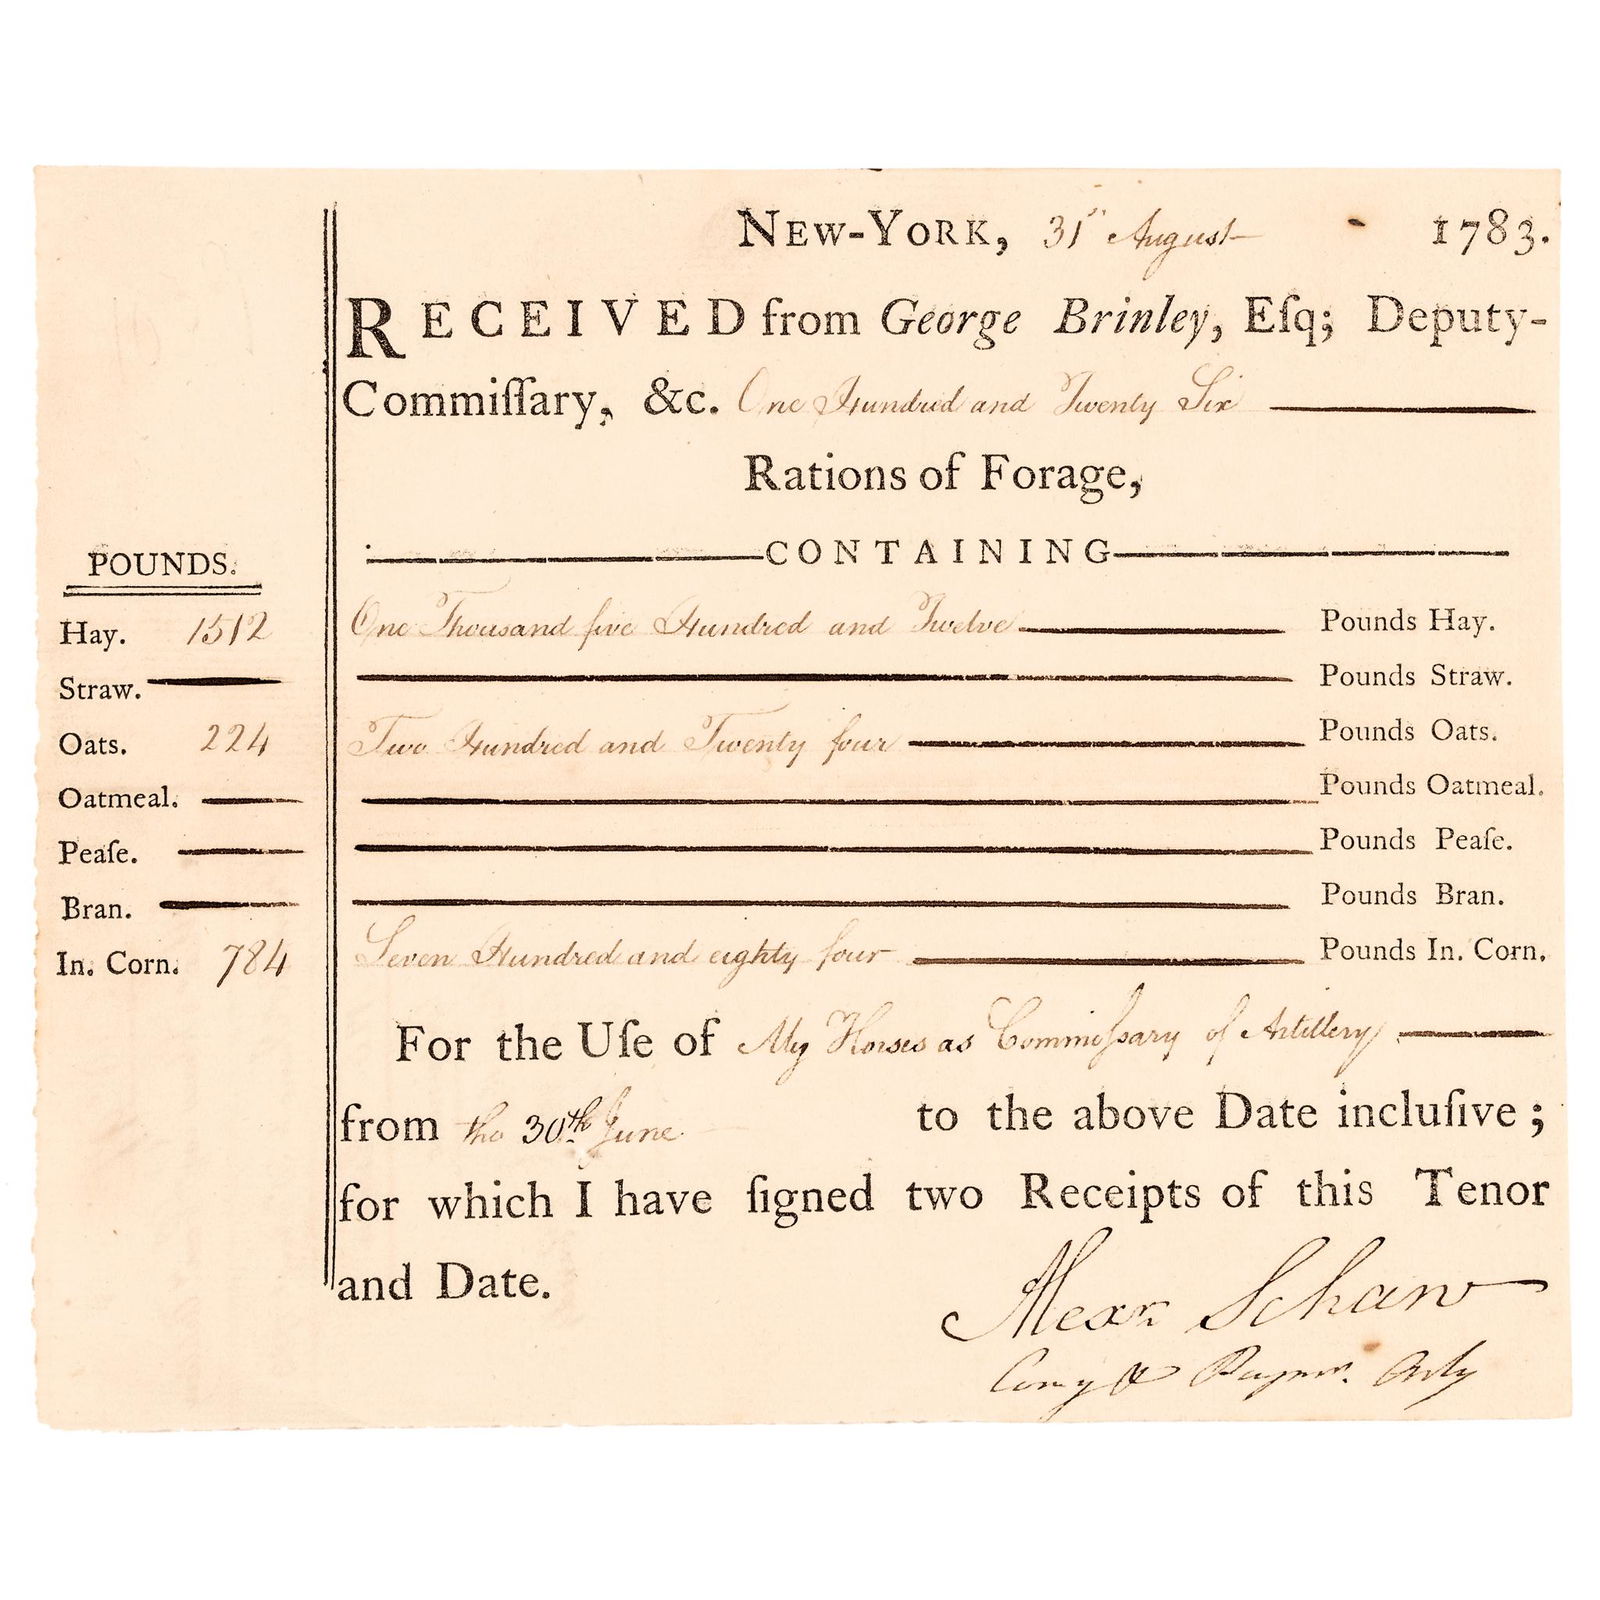 NEW-YORK, 31st August 1783.
RECEIVED from George Brinley, Eſq; Deputy-
Commiſſary, &c. One Hundred and Twenty Six
Rations of Forage,
CONTAINING
POUNDS.
Hay. 1512 One Thousand five Hundred and Twelve Pounds Hay.
Straw. Pounds Straw.
Oats. 224 Two Hundred and Twenty four Pounds Oats.
Oatmeal. Pounds Oatmeal.
Peaſe. Pounds Peaſe.
Bran. Pounds Bran.
In. Corn. 784 Seven Hundred and eighty four Pounds In. Corn.
For the Uſe of My Horses as Commiſsary of Artillery
from the 30th June to the above Date incluſive;
for which I have ſigned two Receipts of this Tenor
and Date.
Alexr. Schaw
Comy & Paymr. Arty